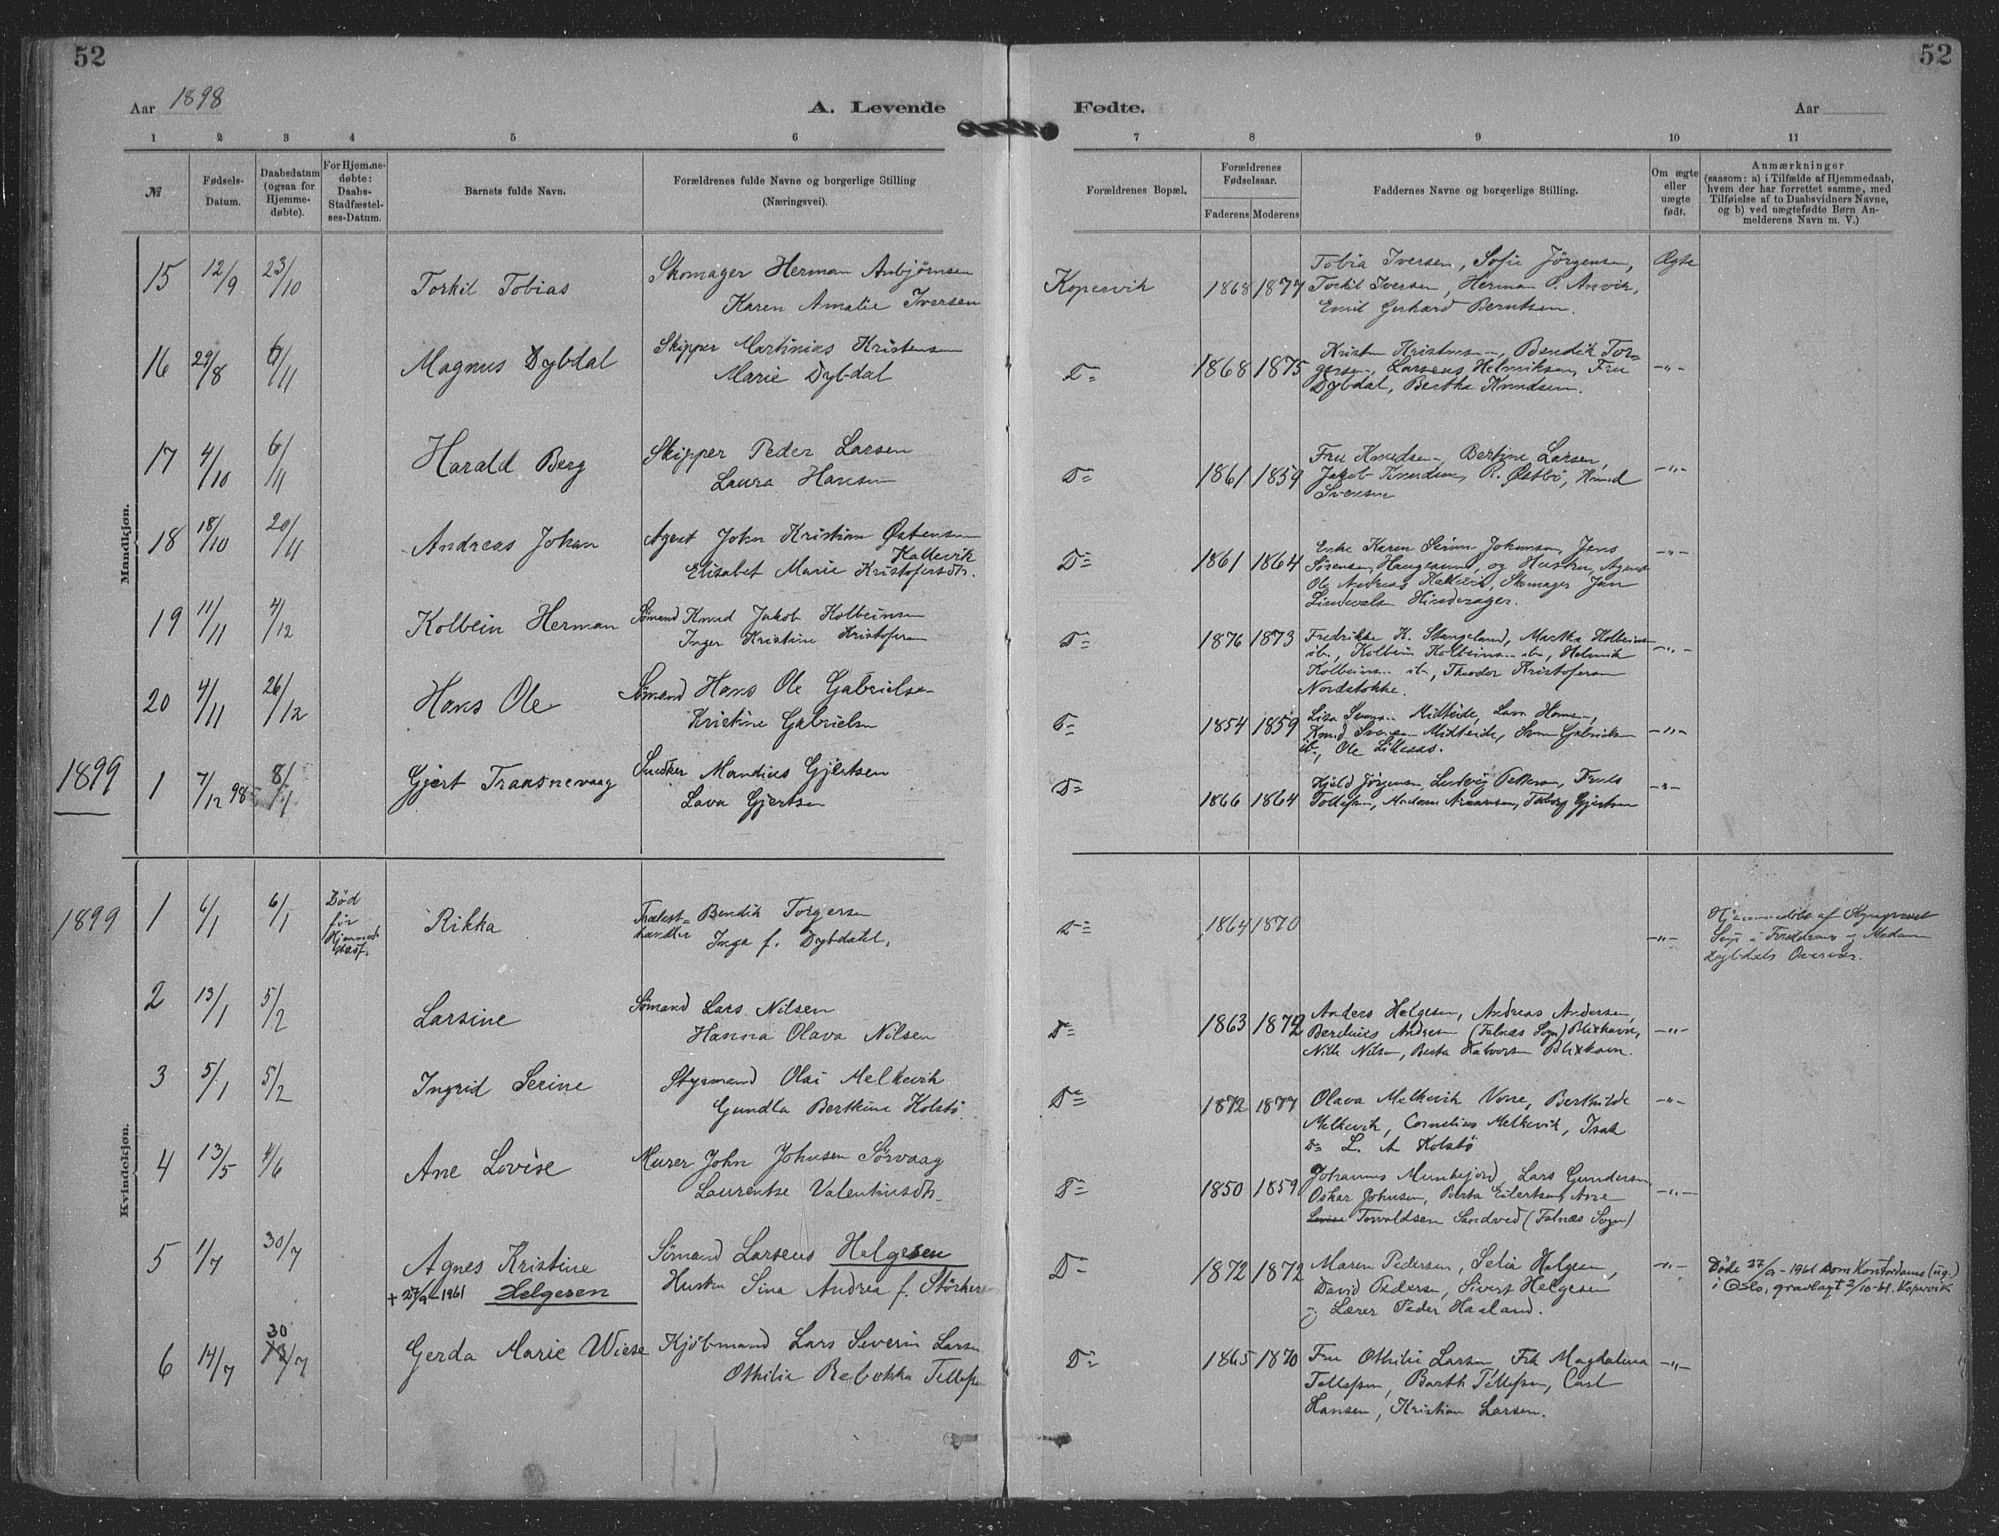 52
52
Aar 1898
A. Levende
Fødte.
Aar
1
2
3
4
5
6
7
8
9
10
11
№
Fødsels-Datum.
Daabsdatum (ogsaa for Hjemmedøbte).
For Hjemmedøbte: Daabs-Stadfæstelses-Datum.
Barnets fulde Navn.
Forældrenes fulde Navne og borgerlige Stilling
(Næringsvei).
Forældrenes Bopæl.
Forældrenes Fødselsaar.
Faderens
Moderens
Faddernes Navne og borgerlige Stilling.
Om ægte eller uægte født.
Anmærkninger
(saasom: a) i Tilfælde af Hjemmedaab,
hvem der har forrettet samme, med
Tilføielse af to Daabsvidners Navne,
og b) ved uægtefødte Børn An-
melderens Navn m. V.)
Mandkjøn.
15 12/9 23/10 Torkil Tobias Skomager Herman Anbjørnsen Kopervik 1868 1877 Tobia Iversen, Sofie Jörgensen, Ægte
Karen Amalie Iversen Torkil Iversen, Herman O. Anvik,
Emil Gerhard Berntsen.
16 29/8 6/11 Magnus Dybdal Skipper Martinius Kristensen D= 1868 1875 Kristen Kristensen, Bendik Tor- -"-
Marie Dybdal gersen, Larsens Helmiksen, Fru
Dybdal, Bertha Knudsen.
17 4/10 6/11 Harald Berg Skipper Peder Larsen D= 1861 1859 Fru Knudsen, Bertine Larsen, -"-
Laura Hansen Jakob Knudsen, R. Østbö, Knud
Svensen
18 18/10 20/11 Andreas Johan Agent John Kristian Østensen D= 1861 1864 Enke Karen Serine Johansen, Jens -"-
Kallevik Sörensen, Haugesund, og Hustru, Agent
Elisabet Marie Kristofersdtr. Ole Andreas Kallevik, Skomager Jan
Hinderager.
19 11/11 4/12 Kolbein Herman Sømand Knud Jakob Kolbeinsen D= 1876 1873 Fredrikke K. Stangeland, Martha Kolbeins- -"-
Inger Kristine Kristofersen ib., Kolbein Kolbeinsen ib., Helmik
Kolbeinsen ib., Theodor Kristofersen
Nordstokke.
20 4/11 26/12 Hans Ole Sømand Hans Ole Gabrielsen D= 1854 1859 -"-
Kristine Gabrielsen Ole
1899 1 7/12 98 8/1 Gjert Traasnevaag Snedker Mandius Gjertsen D= 1866 1864 Kjeld Jørgensen, Ludvig Pettersen, -"-
Lava Gjertsen Tollefsen, Madam Gjertsen
Kvindekjøn.
1899 1 6/1 6/1 Død før Hjemmed. stadf. Rikka Trælast- Bendik Torgersen D= 1864 1870 -"- Hjemmedøbt af
handler Inga f. Dybdahl. og Madam
Dybdals Overvær.
2 13/1 5/2 Larsine Sømand Lars Nilsen D= 1863 1872 Anders Helgesen, Andreas Andersen, -"-
Hanna Olava Nilsen Andersen (Falnæs Sogn) Blixhavn,
Nils Nilsen, Berta Halvorsen Blixhavn.
3 5/1 5/2 Ingrid Serine Styrmand Olai Melkevik D= 1872 1877 Olava Melkevik Vorre, Berthilde -"-
Gundla Bertkine Kolstö. Melkevik, Cornelius Melkevik, Isak
D= L. A. Kolstö
4 13/5 4/6 Ane Lovise Murer John Johnsen Sørvaag D= 1850 1859 Johannes Munkejord, Lars Gundersen, -"-
Laurentse Valentinsdtr. Oskar Johnsen, Berta Eilertsen, Ane
Lovise Torvaldsen Sandved (Falnæs Sogn)
5 1/7 30/7 Agnes Kristine Sømand Larsens Helgesen D= 1872 1872 Maren Pedersen, Selia Helgesen, -"- Døde 27/9-1961 som Kontordame (ug.)
† 27/9-1961 Helgesen Hustru Sina Andrea f. Störkersen David Pedersen, Sivert Helgesen i Oslo, gravlagt 2/10-61. Kopervik
og Lærer Peder Haaland.
6 14/7 30/7 Gerda Marie Wiese Kjøbmand Lars Severin Larsen D= 1865 1870 Fru Othilie Larsen, Frk Magdalena -"-
Othilia Rebekka Tellefsen Tellefsen, Barth Tellefsen, Carl
Hansen, Kristian Larsen.